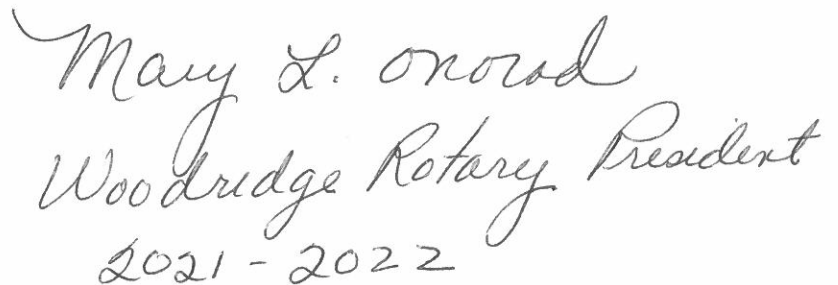 Mary L. Onorad
Woodridge Rotary President
2021-2022